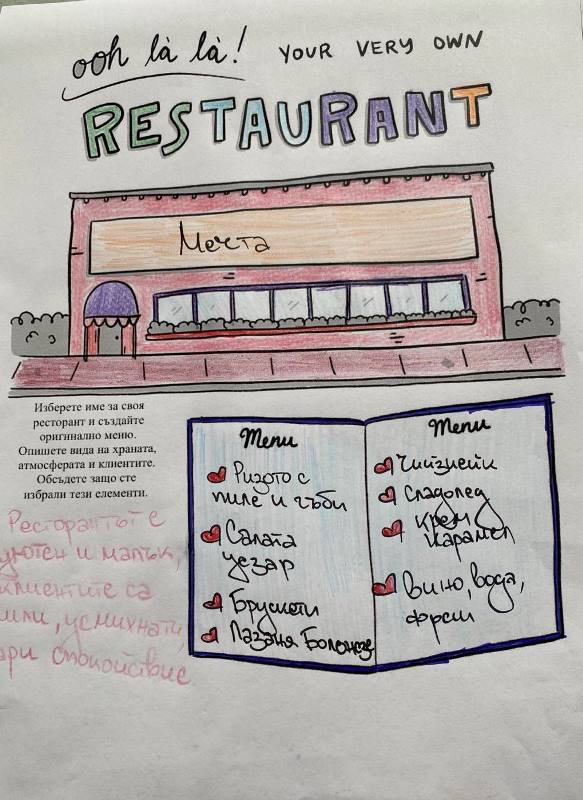 ooh là là! YOUR VERY OWN
RESTAURANT
Мечта
Изберете име за своя
ресторант и създайте
оригинално меню.
Опишете вида на храната,
атмосферата и клиентите.
Обсъдете защо сте
избрали тези елементи.
Ресторантът е
уютен и малък,
клиентите са
мили, усмихнати,
цари спокойствие
Menu
Ризото с
пиле и гъби
Салата
цезар
Брускети
Лазаня Болонезе
Menu
Чийзкейк
Сладолед
Крем
Карамел
Вино, вода,
фреш